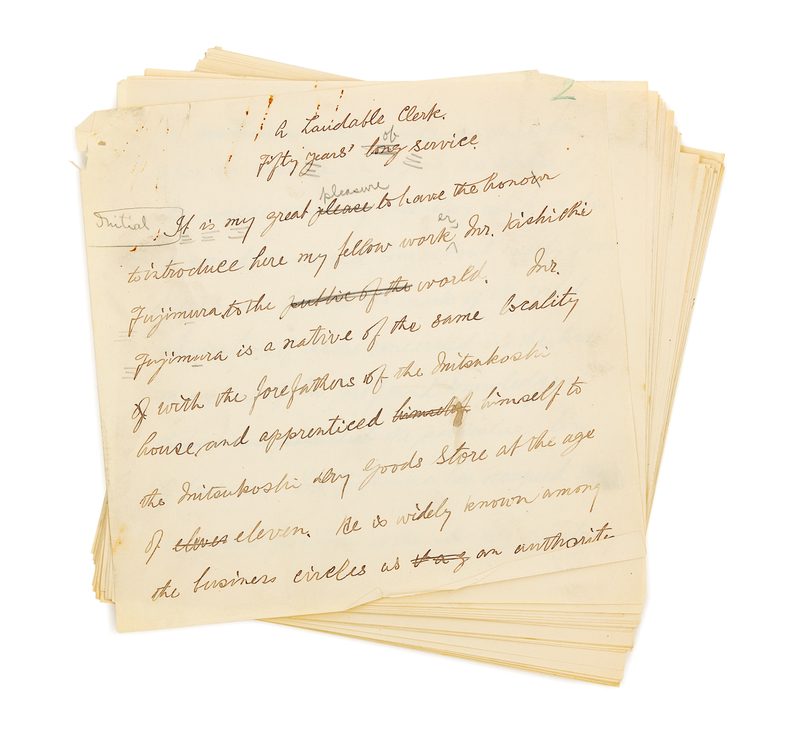 2
A Laudable Clerk.
of
Fifty years' long service.
pleasure
Initial It is my great please to have the honour
er
to introduce here my fellow work Mr. Kishichi
Fujimura, to the public of the world. Mr.
Fujimura is a native of the same locality
of with the forefathers of the Mitsukoshi
house, and apprenticed himself himself to
the Mitsukoshi dry goods store at the age
of eleven. He is widely known among
the business circles as an authorite